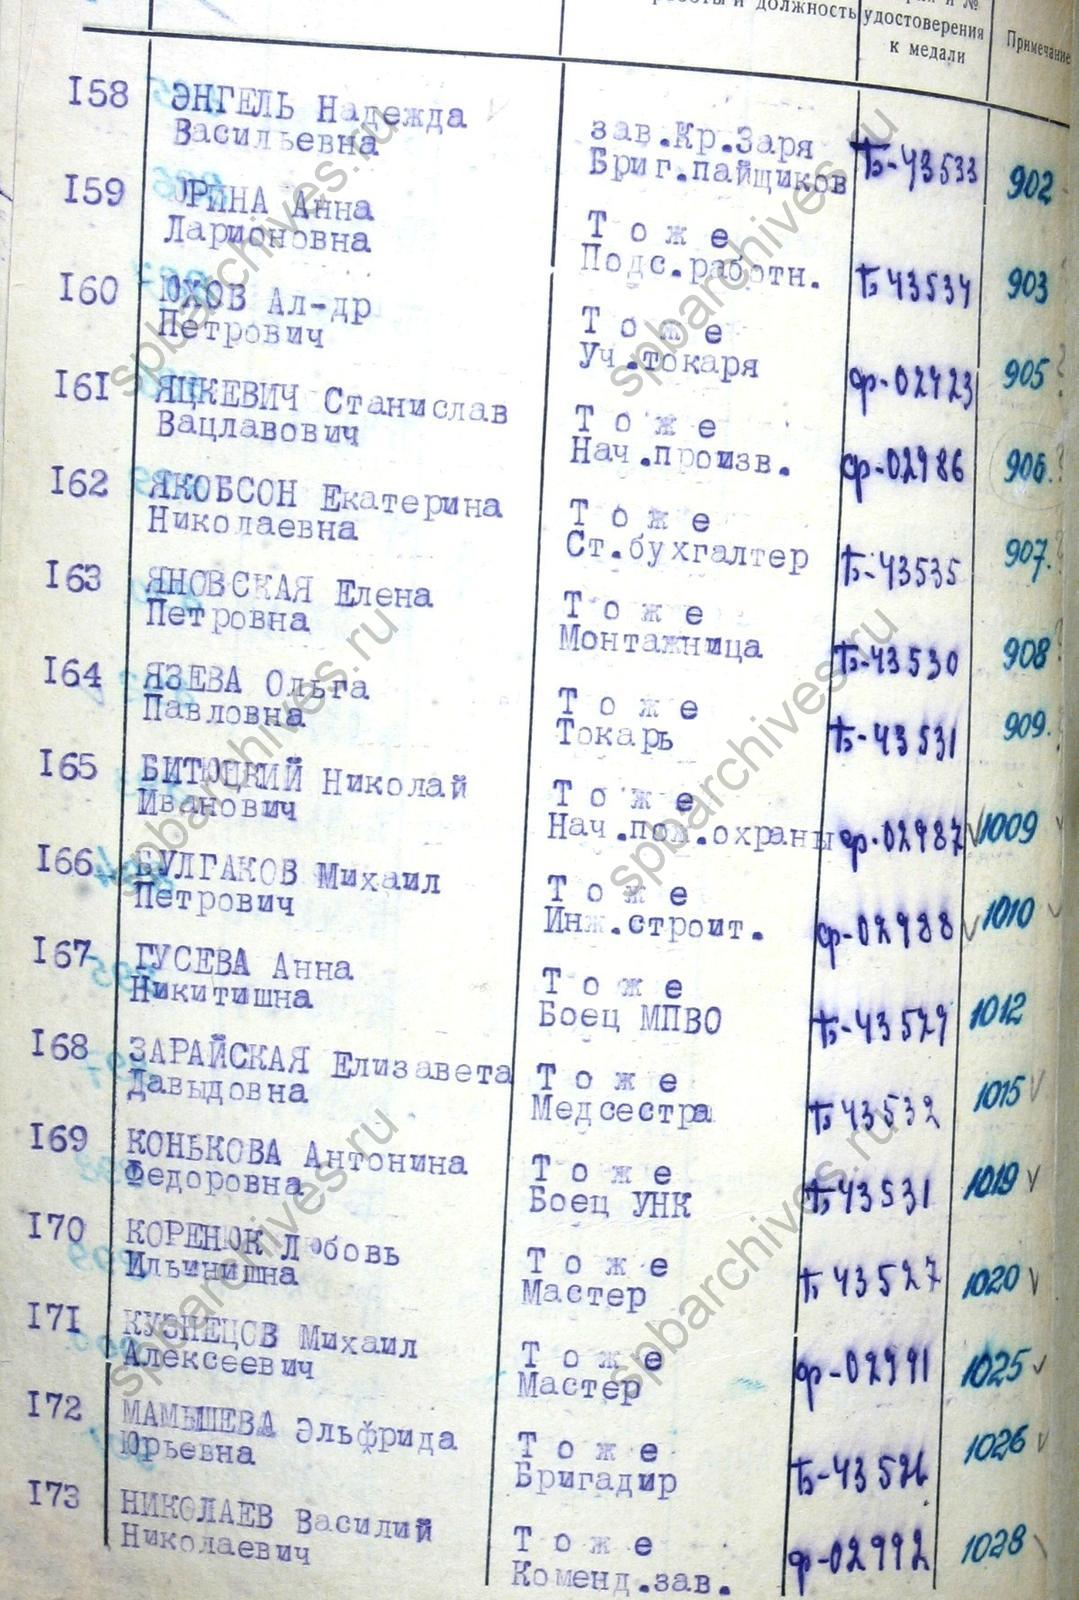 работы и должность
удостоверения
к медали
Примечание
I58 ЭНГЕЛЬ Надежда
Васильевна
зав.Кр.Заря
Бриг.пайщиков
Ѣ-43533 902
I59 ЮРИНА Анна
Ларионовна
Т о ж е
Подс.работн.
Ѣ 43534 903
I60 ЮХОВ Ал-др
Петрович
Т о ж е
Уч.токаря
ф-02423 905
I6I ЯЦКЕВИЧ Станислав
Вацлавович
Т о ж е
Нач.произв.
ф-02986 906.
I62 ЯКОБСОН Екатерина
Николаевна
Т о ж е
Ст.бухгалтер
Ѣ-43535 907.
I63 ЯНОВСКАЯ Елена
Петровна
Т о ж е
Монтажница
Ѣ-43530 908
I64 ЯЗЕВА Ольга
Павловна
Т о ж е
Токарь
Ѣ-43531 909.
I65 БИТЮЦКИЙ Николай
Иванович
Т о ж е
Нач.пож.охраны
ф-02987 1009
I66 БУЛГАКОВ Михаил
Петрович
Т о ж е
Инж.строит.
ф-02988 1010
I67 ГУСЕВА Анна
Никитишна
Т о ж е
Боец МПВО
Ѣ-43529 1012
I68 ЗАРАЙСКАЯ Елизавета
Давыдовна
Т о ж е
Медсестра
Ѣ 43532 1015
I69 КОНЬКОВА Антонина
Федоровна
Т о ж е
Боец УНК
Ѣ 43531 1019
I70 КОРЕНЮК Любовь
Ильинишна
Т о ж е
Мастер
Ѣ 43527 1020
I7I КУЗНЕЦОВ Михаил
Алексеевич
Т о ж е
Мастер
ф-02991 1025
I72 МАМЫШЕВА Эльфрида
Юрьевна
Т о ж е
Бригадир
Ѣ-43526 1026
I73 НИКОЛАЕВ Василий
Николаевич
Т о ж е
Коменд.зав.
ф-02992 1028
spbarchives.ru
spbarchives.ru
spbarchives.ru
spbarchives.ru
spbarchives.ru
spbarchives.ru